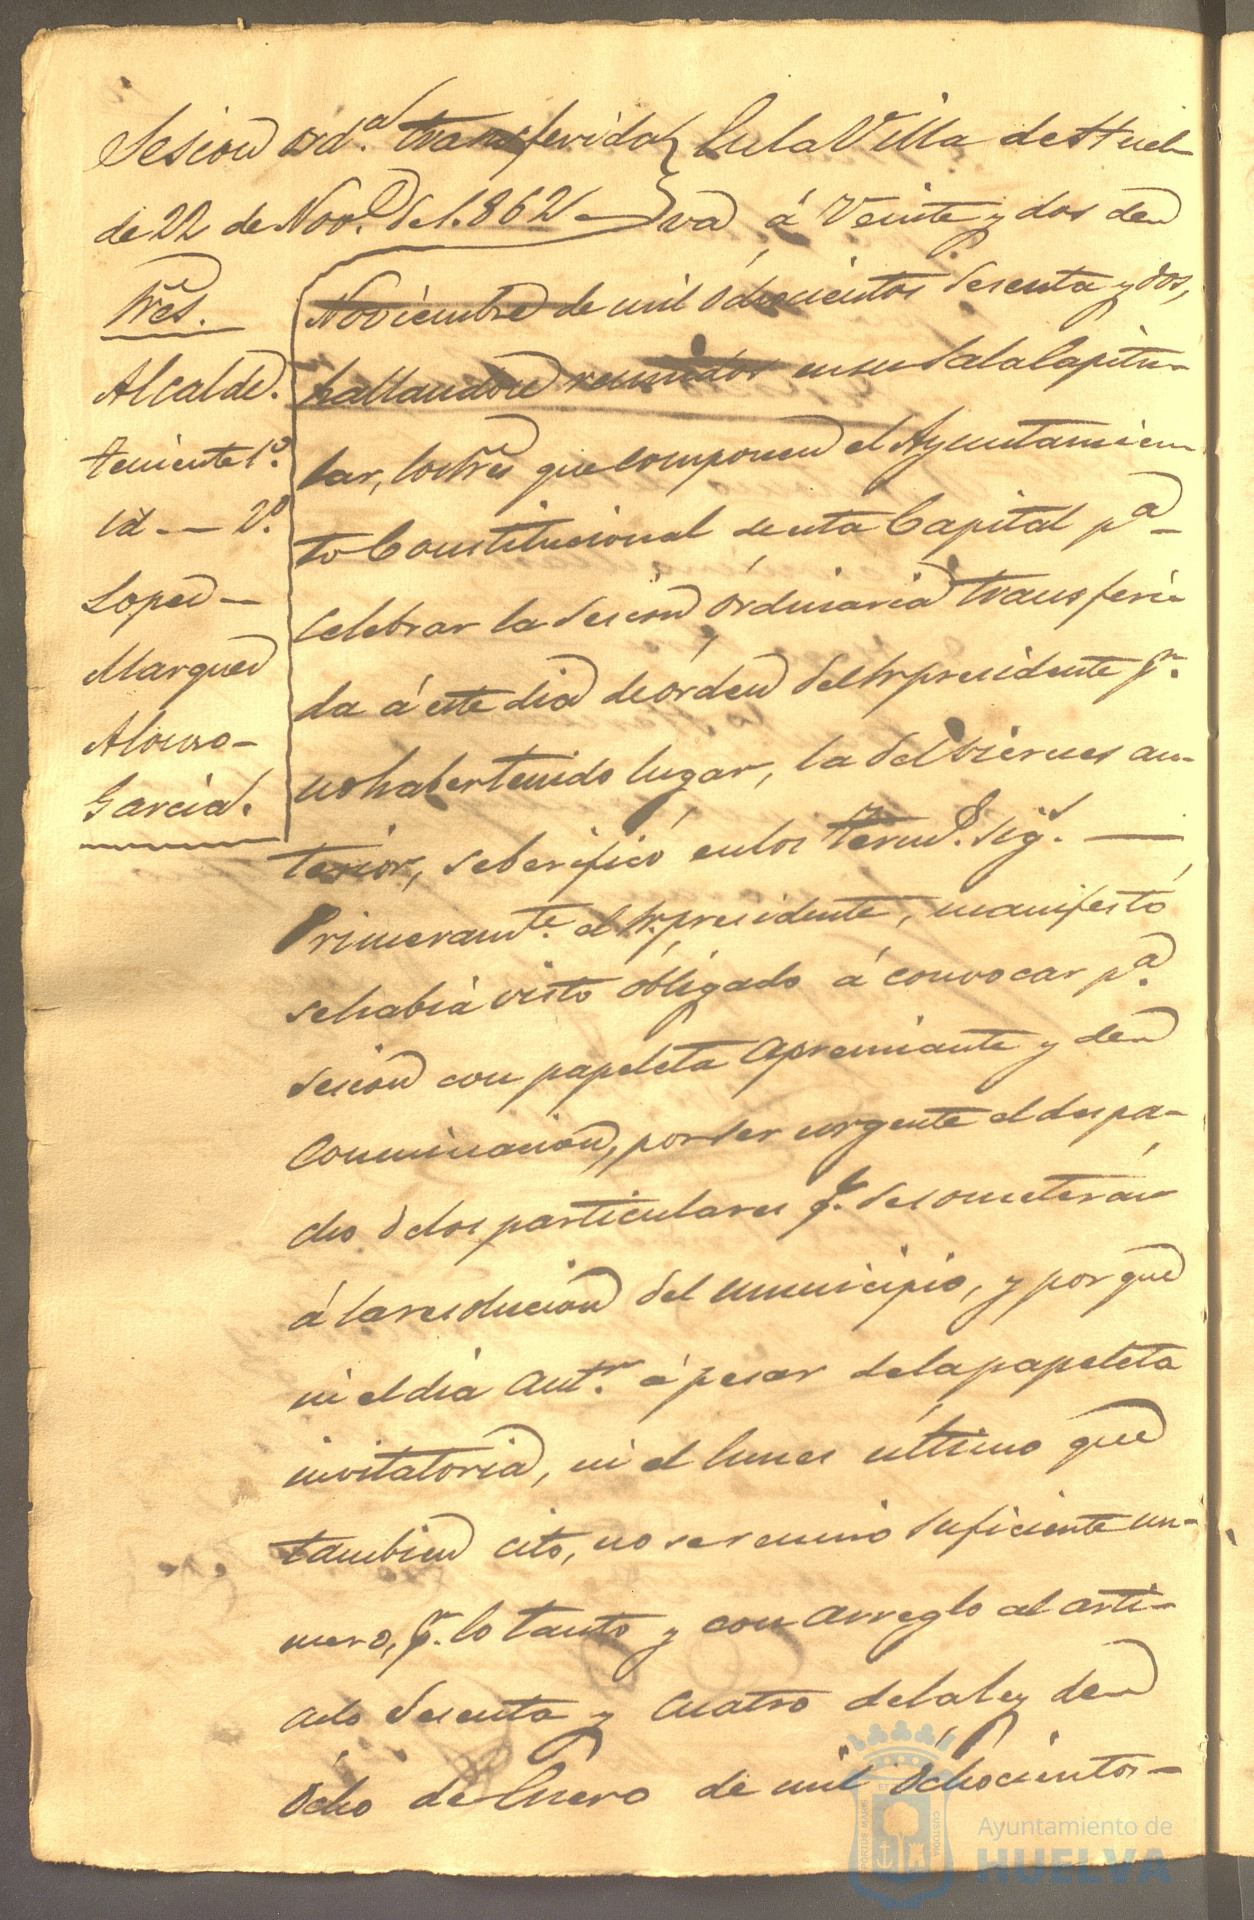 Sesion ord.ª transferida } En la Villa de Huel-
de 22 de Nov.e del.862 — } va á Veinte y dos de
Sres.
Alcalde.
teniente 1º.
id. — 2º.
Lopez —
Marquez
Alonso —
Garcia.
Noviembre de mil ochocientos sesenta y dos,
hallandose reunidos en su Sala Capitu-
lar, los Sres que componen el Ayuntamien-
to Constitucional de esta Capital pª
celebrar la sesion órdinaria transferi-
da á este dia de órden del Sr presidente pr.
no haber tenido lugar, la del viernes an-
terior, se berificó en los termos. sigs. —
Primeramte. el Sr. presidente, manifestó
se habia visto óbligado á convocar pª
sesion con papeleta apremiante y de
Conminacion, por ser urgente el despa-
cho de los particulares q.e se someterán
á la resolucion del municipio, y por que
ni el dia antr. á pesar de la papeleta
invitatoria, ni el lunes último que
tambien citó, no se reunió suficiente nu-
mero, pr. lo tanto y con arreglo al arti-
culo sesenta y cuatro de la ley de
ócho de Enero de mil óchocientos —
Ayuntamiento de
HUELVA